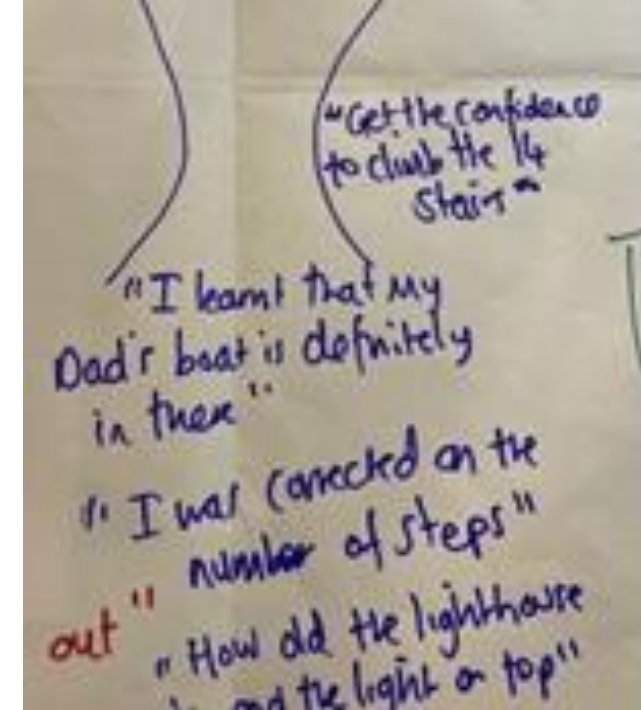 "Get the confidence
to climb the 14
stairs"
"I learnt that my
Dad's boat is definitely
in there"
"I was corrected on the
number of steps"
out"
"How old the lighthouse
is and the light on top"